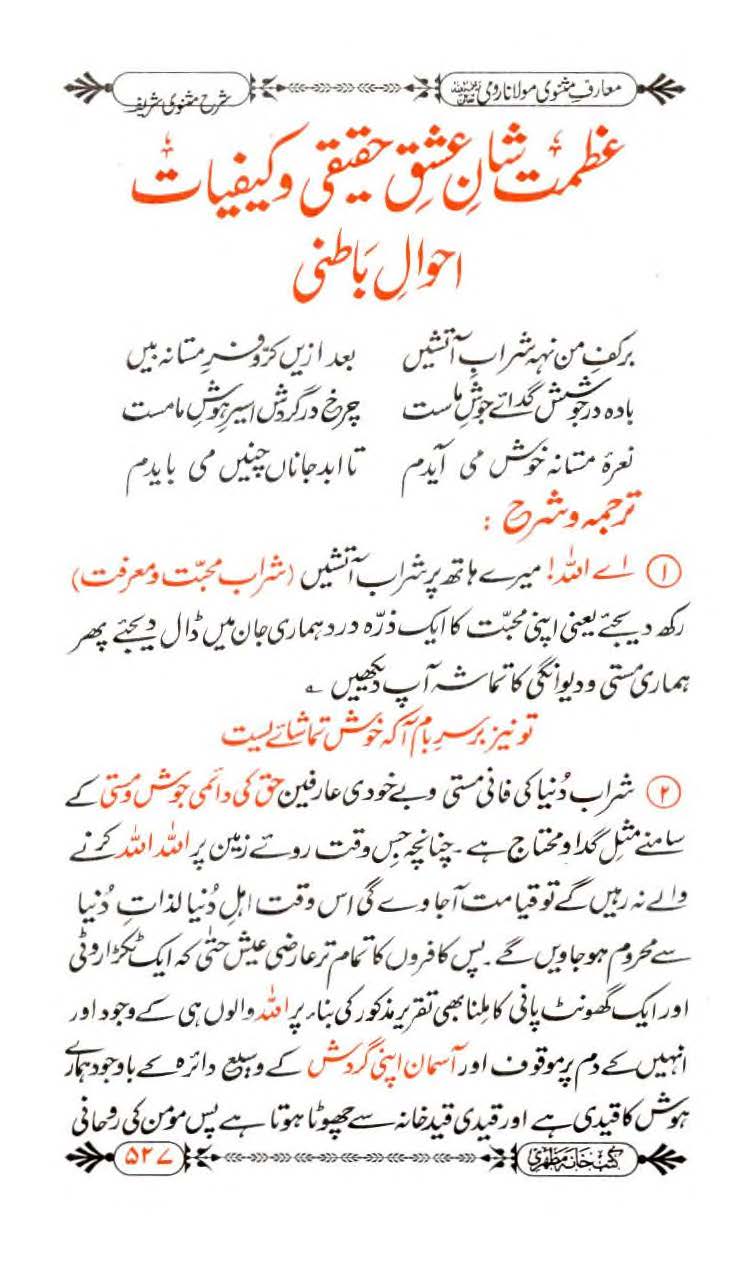 معارفِ مثنوی مولانا رومی رحمۃ اللہ تعالیٰ علیہ
شرح مثنوی شریف
عظمت شانِ عشقِ حقیقی و کیفیات
احوالِ باطنی
بر کفِ من نہہ شرابِ آتشیں بعد ازیں کرّ و فرِ مستانہ بیں
بادہ در جوشش گدائے جوشِ ماست چرخ در گردش اسیرِ ہوشِ ماست
نعرۂ مستانہ خوش می آیدم تا ابد جاناں چنیں می بایدم
ترجمہ و شرح :
۱ اے اللہ! میرے ہاتھ پر شراب آتشیں (شرابِ محبّت و معرفت)
رکھ دیجئے یعنی اپنی محبّت کا ایک ذرّہ درد ہماری جان میں ڈال دیجئے پھر
ہماری مستی و دیوانگی کا تماشہ آپ دیکھیں ؎
تو نیز بر سرِ بام آ کہ خوش تماشائے یست
۲ شراب دُنیا کی فانی مستی و بے خودی عارفین حق کی دائمی جوش و مستی کے
سامنے مثلِ گدا و محتاج ہے۔ چنانچہ جس وقت روئے زمین پر اللہ اللہ کرنے
والے نہ رہیں گے تو قیامت آجاوے گی اس وقت اہلِ دُنیا لذاتِ دُنیا
سے محروم ہوجاویں گے۔ پس کافروں کا تمام تر عارضی عیش حتیٰ کہ ایک ٹکڑا روٹی
اور ایک گھونٹ پانی کا ملنا بھی تقریر مذکور کی بناء پر اللہ والوں ہی کے وجود اور
انہیں کے دم پر موقوف اور آسمان اپنی گردش کے وسیع دائرہ کے باوجود ہمارے
ہوش کا قیدی ہے اور قیدی قیدخانہ سے چھوٹا ہوتا ہے پس مومن کی روحانی
کتب خانہ مظہری
۵۲۷